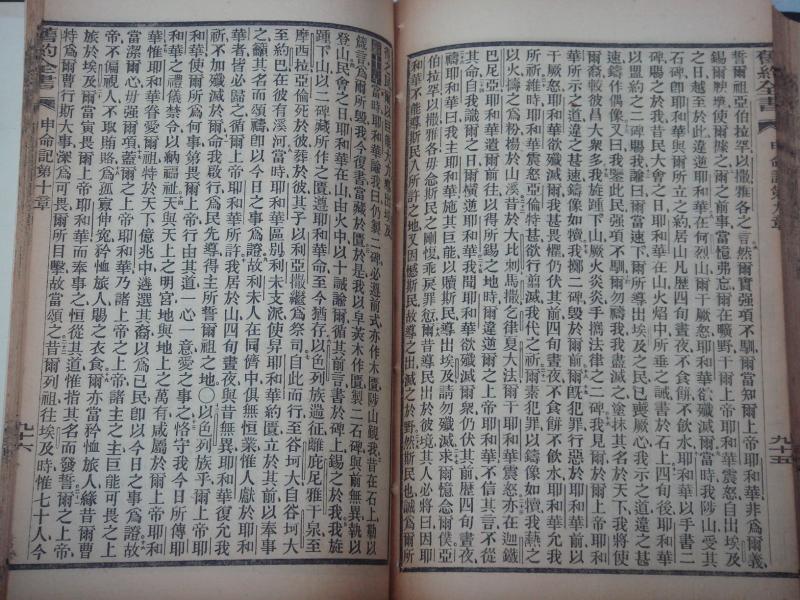 舊約全書 申命記第九章 九十五
誓爾祖亞伯拉罕以撒雅各之言然爾實強項不馴爾當知爾上帝耶和華非爲爾義
錫爾腴壤使爾據之爾之前事當憶弗忘爾在曠野干爾上帝耶和華震怒自出埃及
之日越至於此違逆耶和華在何烈山爾干厥怒耶和華欲殲滅爾當時我陟山受其
石碑卽耶和華與爾所立之約居山凡歷四旬晝夜不食餅不飲水耶和華以手書二
碑賜之於我昔民大會之日耶和華在山火焰中所垂之誡書於石上四旬後耶和華
以盟約之二碑賜我諭我曰爾當速下爾所導出埃及之民已喪厥心我示之道違之甚
速鑄作偶像又曰我鑒此民強項不馴爾勿禱我我盡滅之塗抹其名於天下我將使
爾裔較彼昌大衆多我旋踵下山厥火炎炎手攜法律之二碑我見爾於爾上帝耶和
華所示之道違之甚速鑄像如犢我擲二碑毀於爾前爾旣犯罪行惡於耶和華前
干厥怒耶和華欲殲滅爾我甚畏懼仍伏其前四旬晝夜不食餅不飲水耶和華允我
所祈維時耶和華震怒亞倫特甚欲行翦滅我代之祈爾素犯罪以鑄像如犢我爇之
以火擣之爲粉揚於山溪昔於大比剌馬撒之律夏大法爾干耶和華震怒亦在迦鐵
巴尼亞耶和華遣爾前往以得所錫之地時爾違逆爾之上帝耶和華不信其言不從
其命自我識爾之日爾橫逆耶和華我聞耶和華欲殲滅爾衆仍伏其前歷四旬晝夜
禱耶和華曰我主耶和華施其巨能以贖斯民導出埃及請勿殲滅求爾憶念爾僕亞
伯拉罕以撒雅各毋念斯民之剛愎乖戾罪愆爾昔導民出於彼境其人必將曰因耶
和華不能導斯民入所許之地又因憾斯民故導之出滅之於野然斯民也誠爲爾所
有之民爾以巨能大力導出埃及
第十章 當時耶和華諭我曰仍製二碑必遵前式亦作木匱陟山覲我昔在石上勒以
箴言爲爾所毀我今復書當藏於匱於是我以皁莢木作匱製二石碑與前無異執以
登山民會之日耶和華在山由火中以十誡諭爾循其前言書於碑上錫之於我我旋
踵下山以二碑藏所作之匱遵耶和華命至今猶存以色列族遄征離庇足雅干泉至
摩西拉亞倫死於彼葬於彼其子以利亞撒繼爲祭司自此而行至谷坷大自谷坷大
至約巴在彼有溪河當時耶和華區別利未支派使舁耶和華約匱立於其前以奉事
之籲其名而頌禱卽以今日之事爲證故利未人在同儕中俱無恆業惟人獻於耶和
華者皆必歸之循爾上帝耶和華所許我居於山四旬晝夜與昔無異耶和華復允我
祈不加殲滅於爾命我啟行爲民先導得主所誓爾祖之地○以色列族乎爾上帝耶
和華使爾所爲何事第畏爾上帝行由其道一心一意愛之事之恪守我今日所傳耶
和華之禮儀禁令以納福祉天與天上之明宮地與地上之萬有咸屬於爾上帝耶和
華惟耶和華眷愛爾祖特於天下億兆中遴選其裔以爲己民卽以今日之事爲證故
當潔爾心毋強爾項蓋爾之上帝耶和華乃諸上帝之上帝諸主之主巨能可畏之上
帝不偏視人不取賄賂爲孤寡伸冤矜恤旅人賜之衣食爾亦當矜恤旅人緣昔爾曹
旅於埃及爾當寅畏爾上帝耶和華而奉事之恆從其道惟指其名而發誓爾之上帝
特爲爾曹行斯大事深爲可畏爾所目擊故當頌之昔爾列祖往埃及時惟七十人今
舊約全書 申命記第十章 九十六